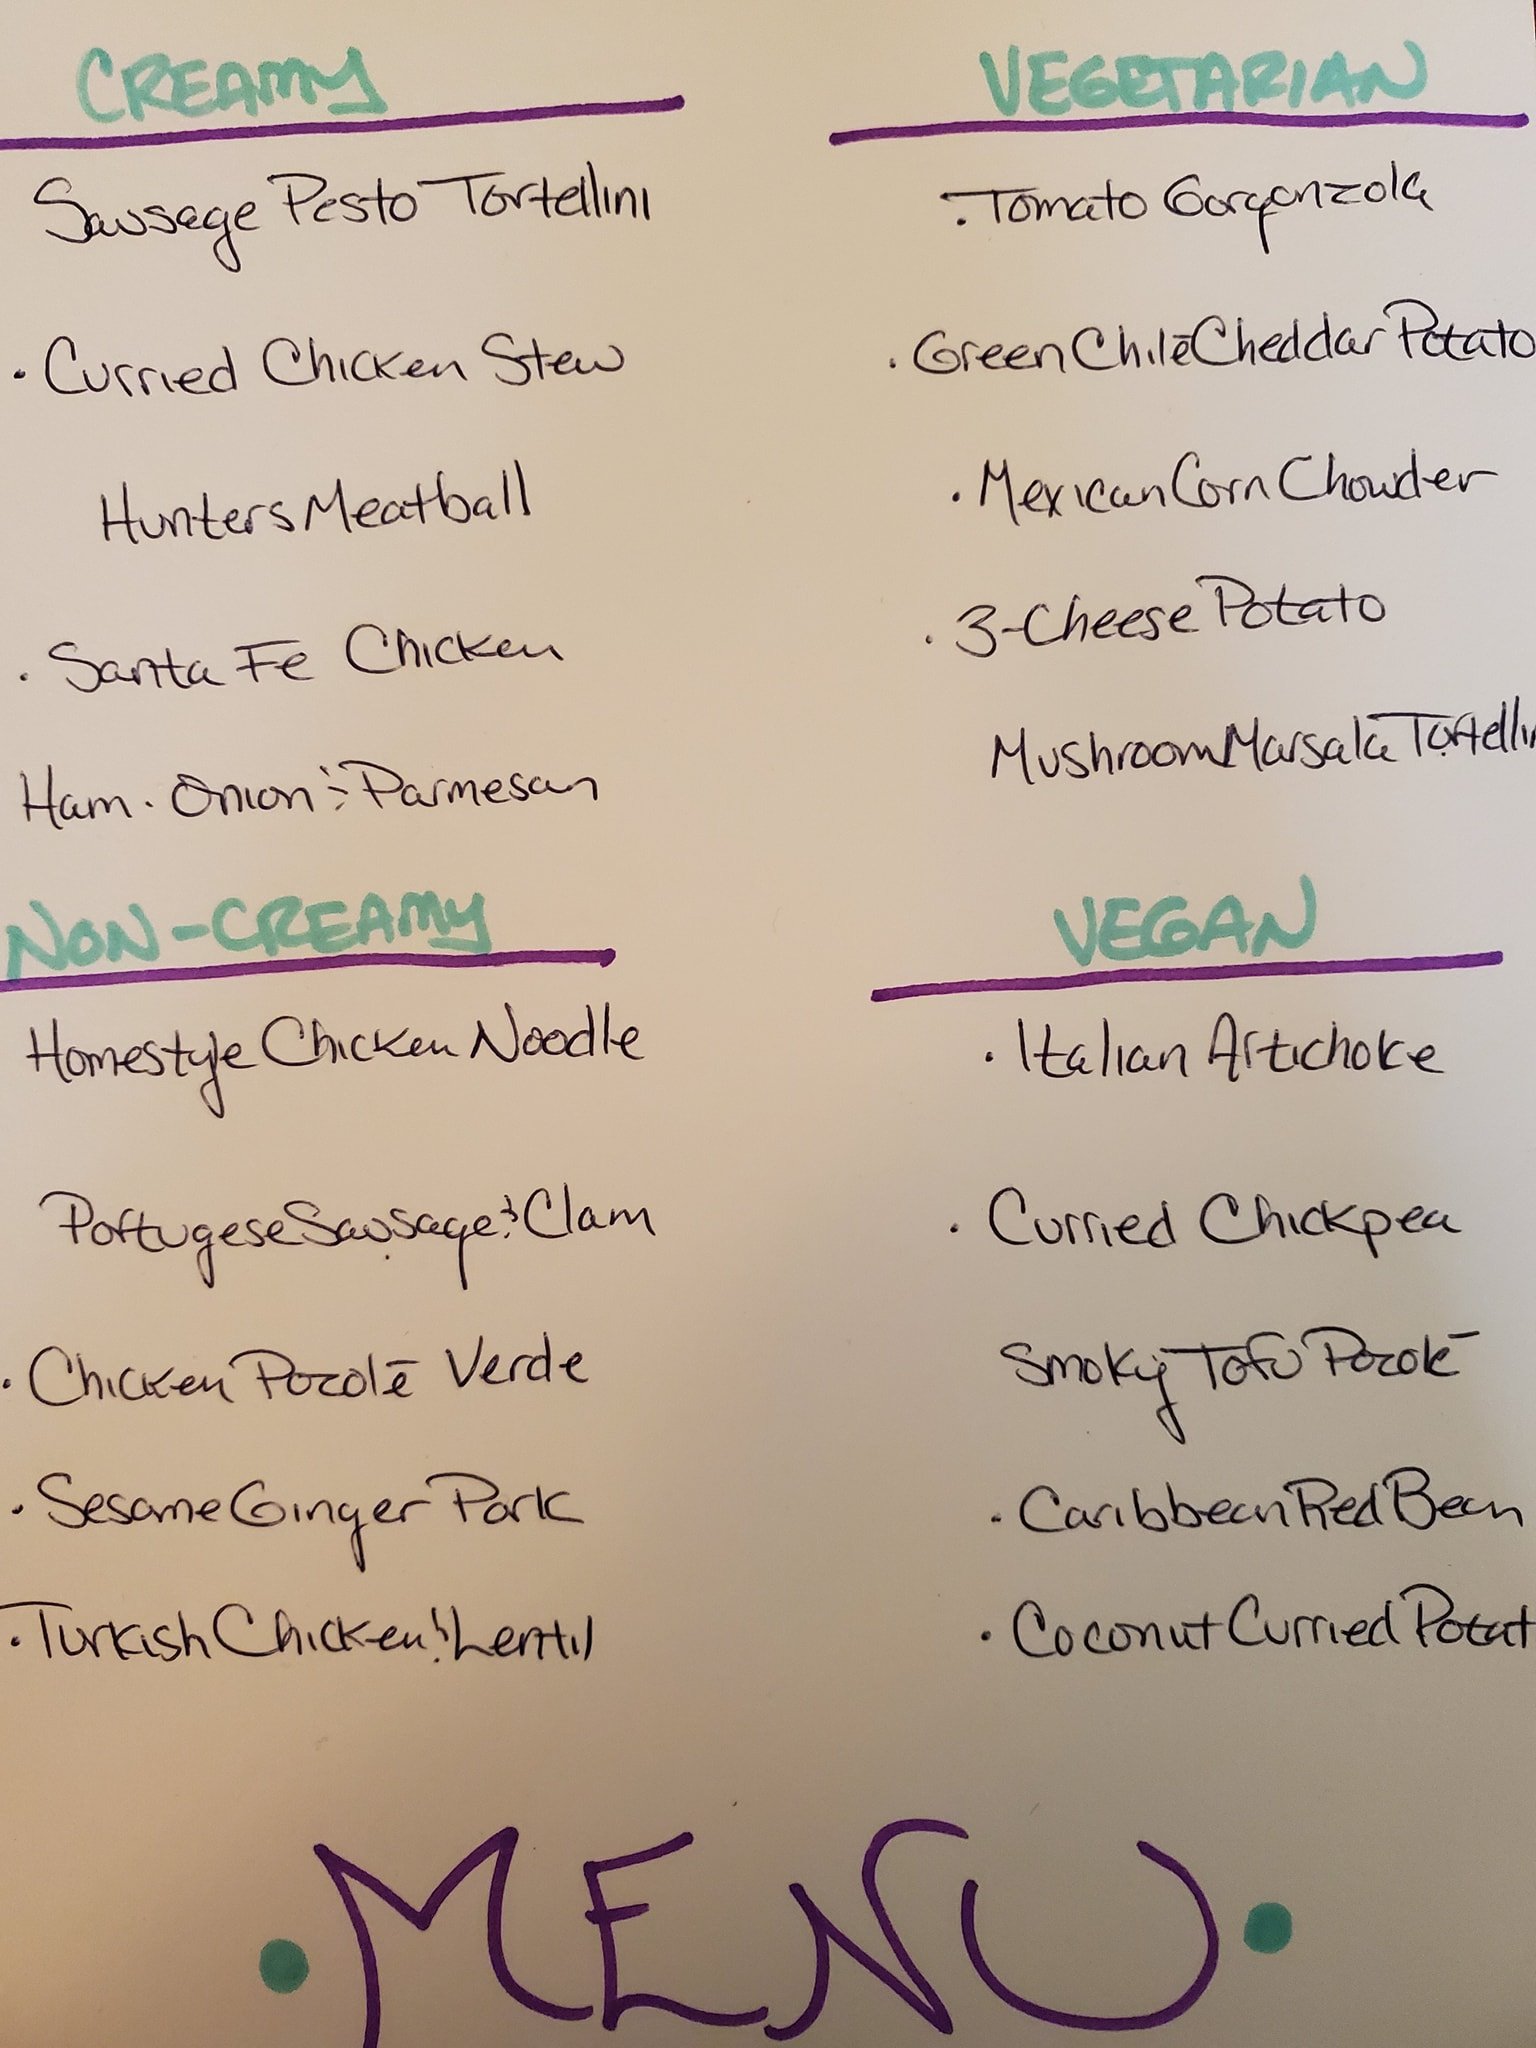 CREAMY
Sausage Pesto Tortellini
· Curried Chicken Stew
Hunters Meatball
· Santa Fe Chicken
Ham · Onion & Parmesan
NON-CREAMY
Homestyle Chicken Noodle
Portugese Sausage & Clam
· Chicken Pozolē Verde
· Sesame Ginger Pork
· Turkish Chicken & Lentil
VEGETARIAN
· Tomato Gorgonzola
· Green Chilē Cheddar Potato
· Mexican Corn Chowder
· 3-Cheese Potato
Mushroom Marsala Tortellin
VEGAN
· Italian Artichoke
· Curried Chickpea
Smoky Tofu Pozolē
· Caribbean Red Bean
· Coconut Curried Potat
· MENU ·